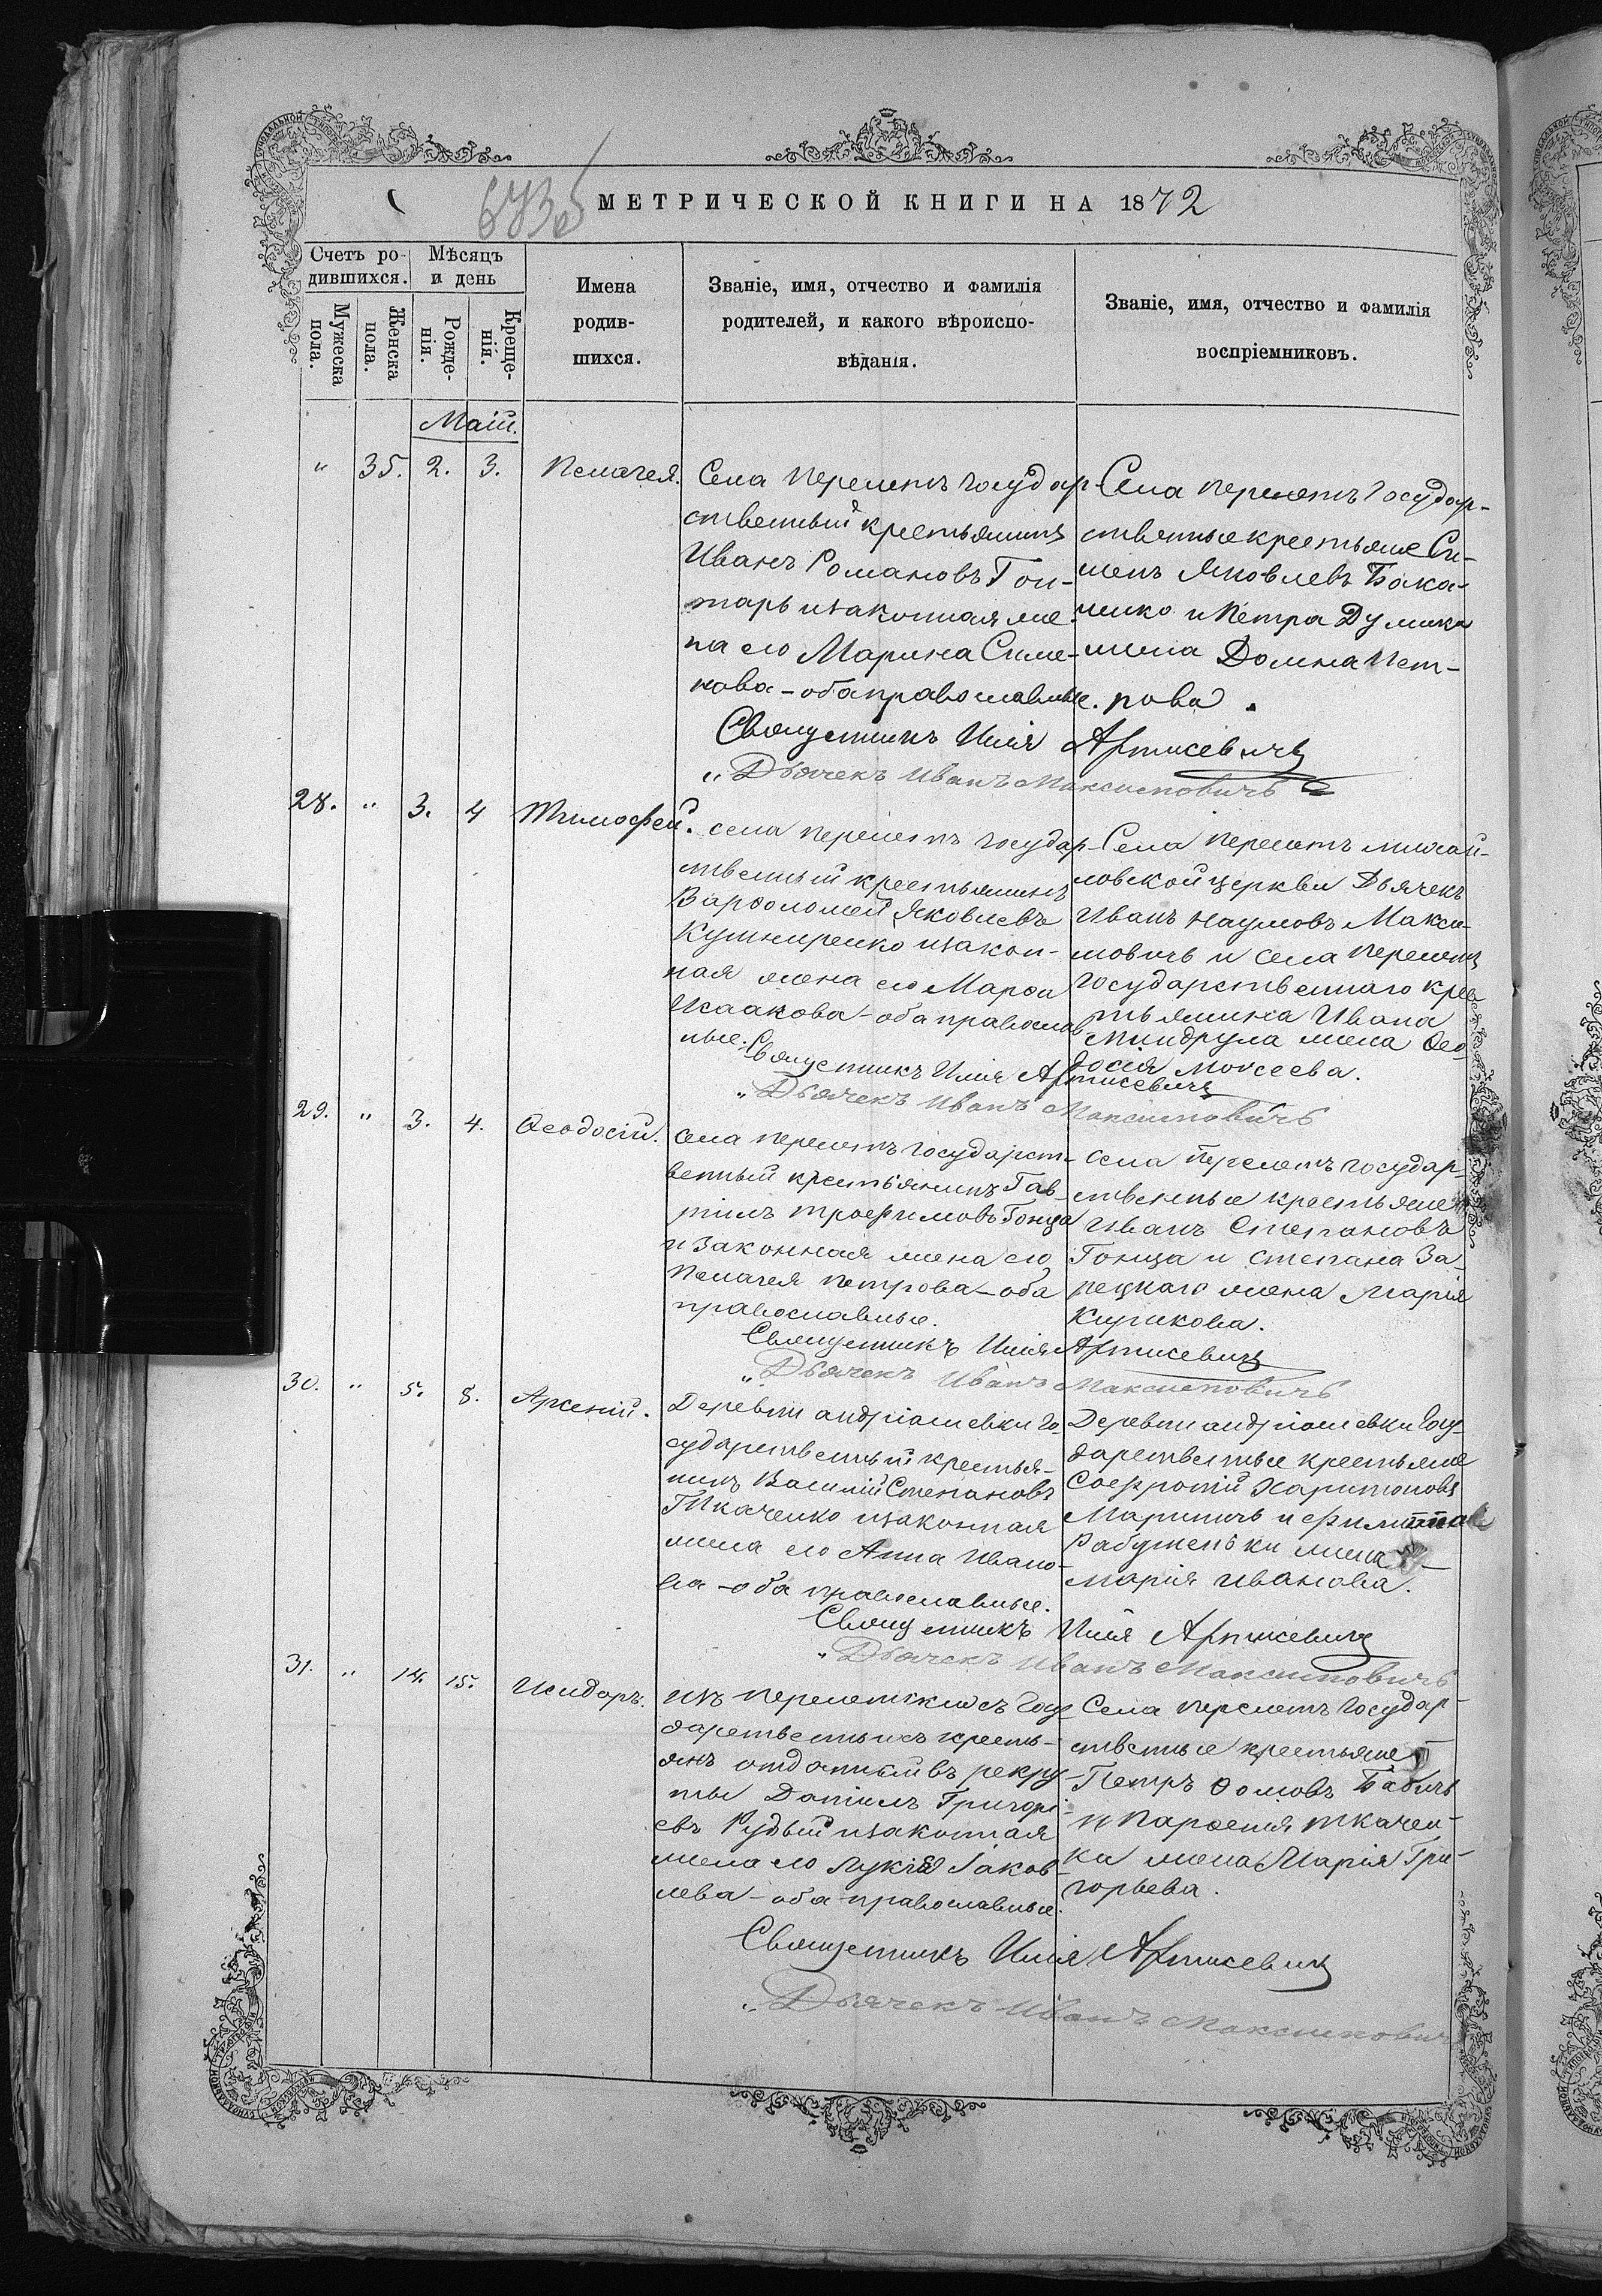 МЕТРИЧЕСКОЙ КНИГИ НА 1872
Счетъ ро-
дившихся.
Мѣсяцъ
и день
Мужеска
пола.
Женска
пола.
Рожде-
нія.
Креще-
ній.
Имена
родив-
шихся.
Званіе, имя, отчество и фамилія
родителей, и какого вѣроиспо-
вѣданія.
Званіе, имя, отчество и фамилія
воспріемниковъ.
Май.
" 35. 2. 3. Пелагея.
Села Перелетъ Государ-
ственный крестьянинъ
Иванъ Романовъ Гон-
тарь и законная же-
на его Марина Симе-
нова - оба православные.
Села Перелетъ Государ-
ственные крестьяне Си-
менъ Яковлевъ Бака-
ленко и Петра Думика
жена Домна Пет-
рова.
Священникъ Илія Артисевичъ
"Дьячекъ Иванъ Максимовичъ
28. " 3. 4 Тимофей.
села Перелетъ государ-
ственный крестьянинъ
Варѳоломей Яковлевъ
Кушниренко и закон-
ная жена его Марѳа
Исаакова - оба православ
ные.
Села Перелетъ Михай-
ловской церкви Дьячекъ
Иванъ Наумовъ Макси-
мовичъ и села Перелетъ
Государственнаго кре-
стьянина Ивана
Миндрула жена Ѳео-
досія Моисеева.
Священникъ Илія Артисевичъ
"Дьячекъ Иванъ Максимовичъ
29. " 3. 4. Ѳеодосій.
села Перелетъ государст-
венный крестьянинъ Гав-
рилъ Трофимовъ Гонца
и законная жена его
Пелагея Петрова - оба
православные.
села Перелетъ государ-
ственные крестьяне
Иванъ Степановъ
Гонца и Степана За-
рецкаго жена Марія
Кирикова.
Священникъ Илія Артисевичъ
"Дьячекъ Иванъ Максимовичъ
30. " 5. 8. Арсеній.
Деревни Андріашевки Го-
сударственный крестья-
нинъ Василій Степановъ
Ткаченко и законная
жена его Анна Ивано-
ва - оба православные.
Деревни Андріашевки Госу-
дарственные крестьяне
Софроній Харитоновъ
Мариничъ и Филиппа
жена
Марія Иванова.
Священникъ Илія Артисевичъ
"Дьячекъ Иванъ Максимовичъ
31. " 14. 15. Исидоръ.
изъ Перелетскихъ Госу-
дарственныхъ кресть-
янъ отданный въ рекру-
ты Даніилъ Григорі-
евъ Рудый и законная
жена его Лукія Іаков-
лева - оба православные.
Села Перелетъ государ-
ственные крестьяне
Петръ Ѳомовъ Бабичъ
и Парѳенія Ткачен-
ка жена Марія Гри-
горьева.
Священникъ Илія Артисевичъ
"Дьячекъ Иванъ Максимовичъ